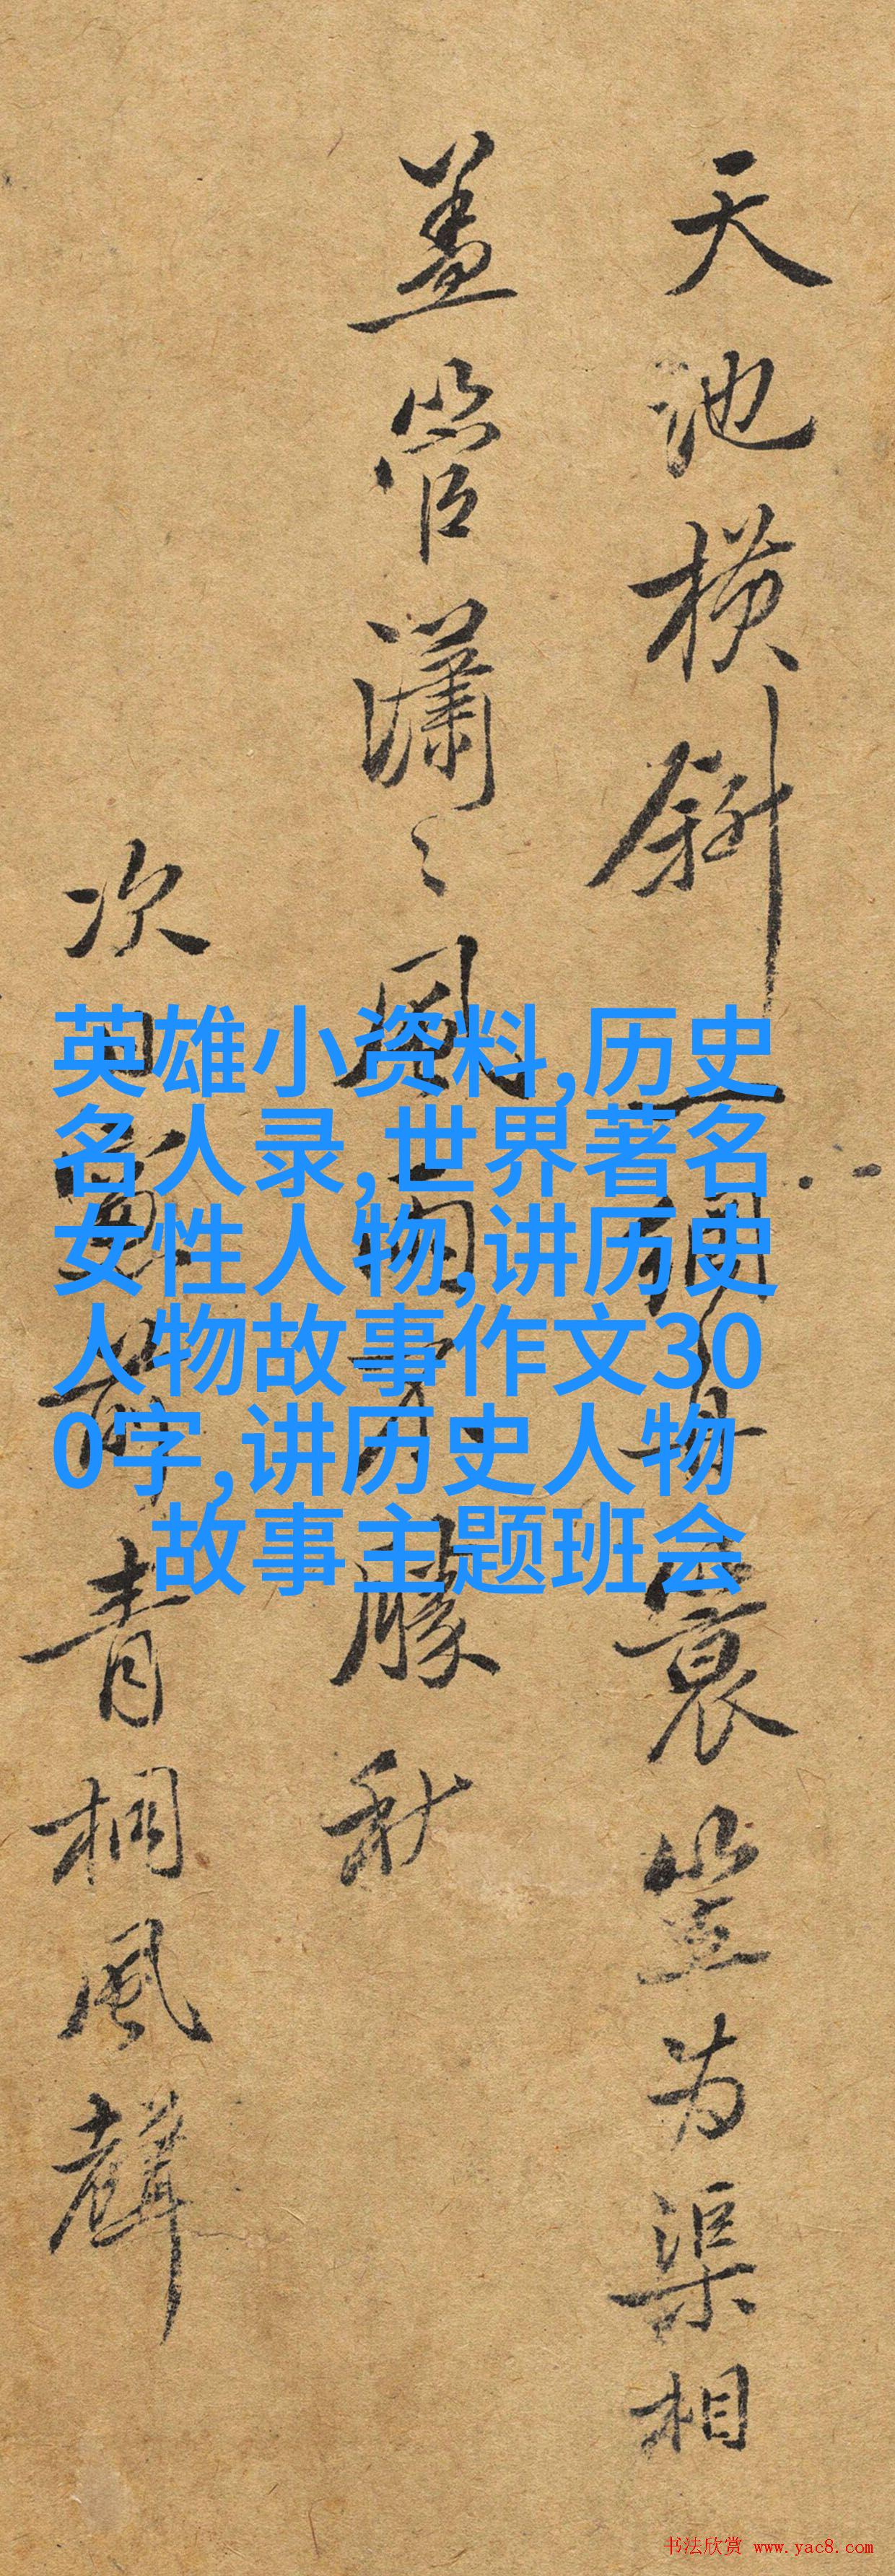 天池横斜一洞月蓑笠为渠相
盖管潇々风雨才朦秋
次日前青桐風聲
英雄小资料,历史
名人录,世界著名
女性人物,讲历史
人物故事作文30
0字,讲历史人物
故事主题班会
书法欣赏 www.yac8.com